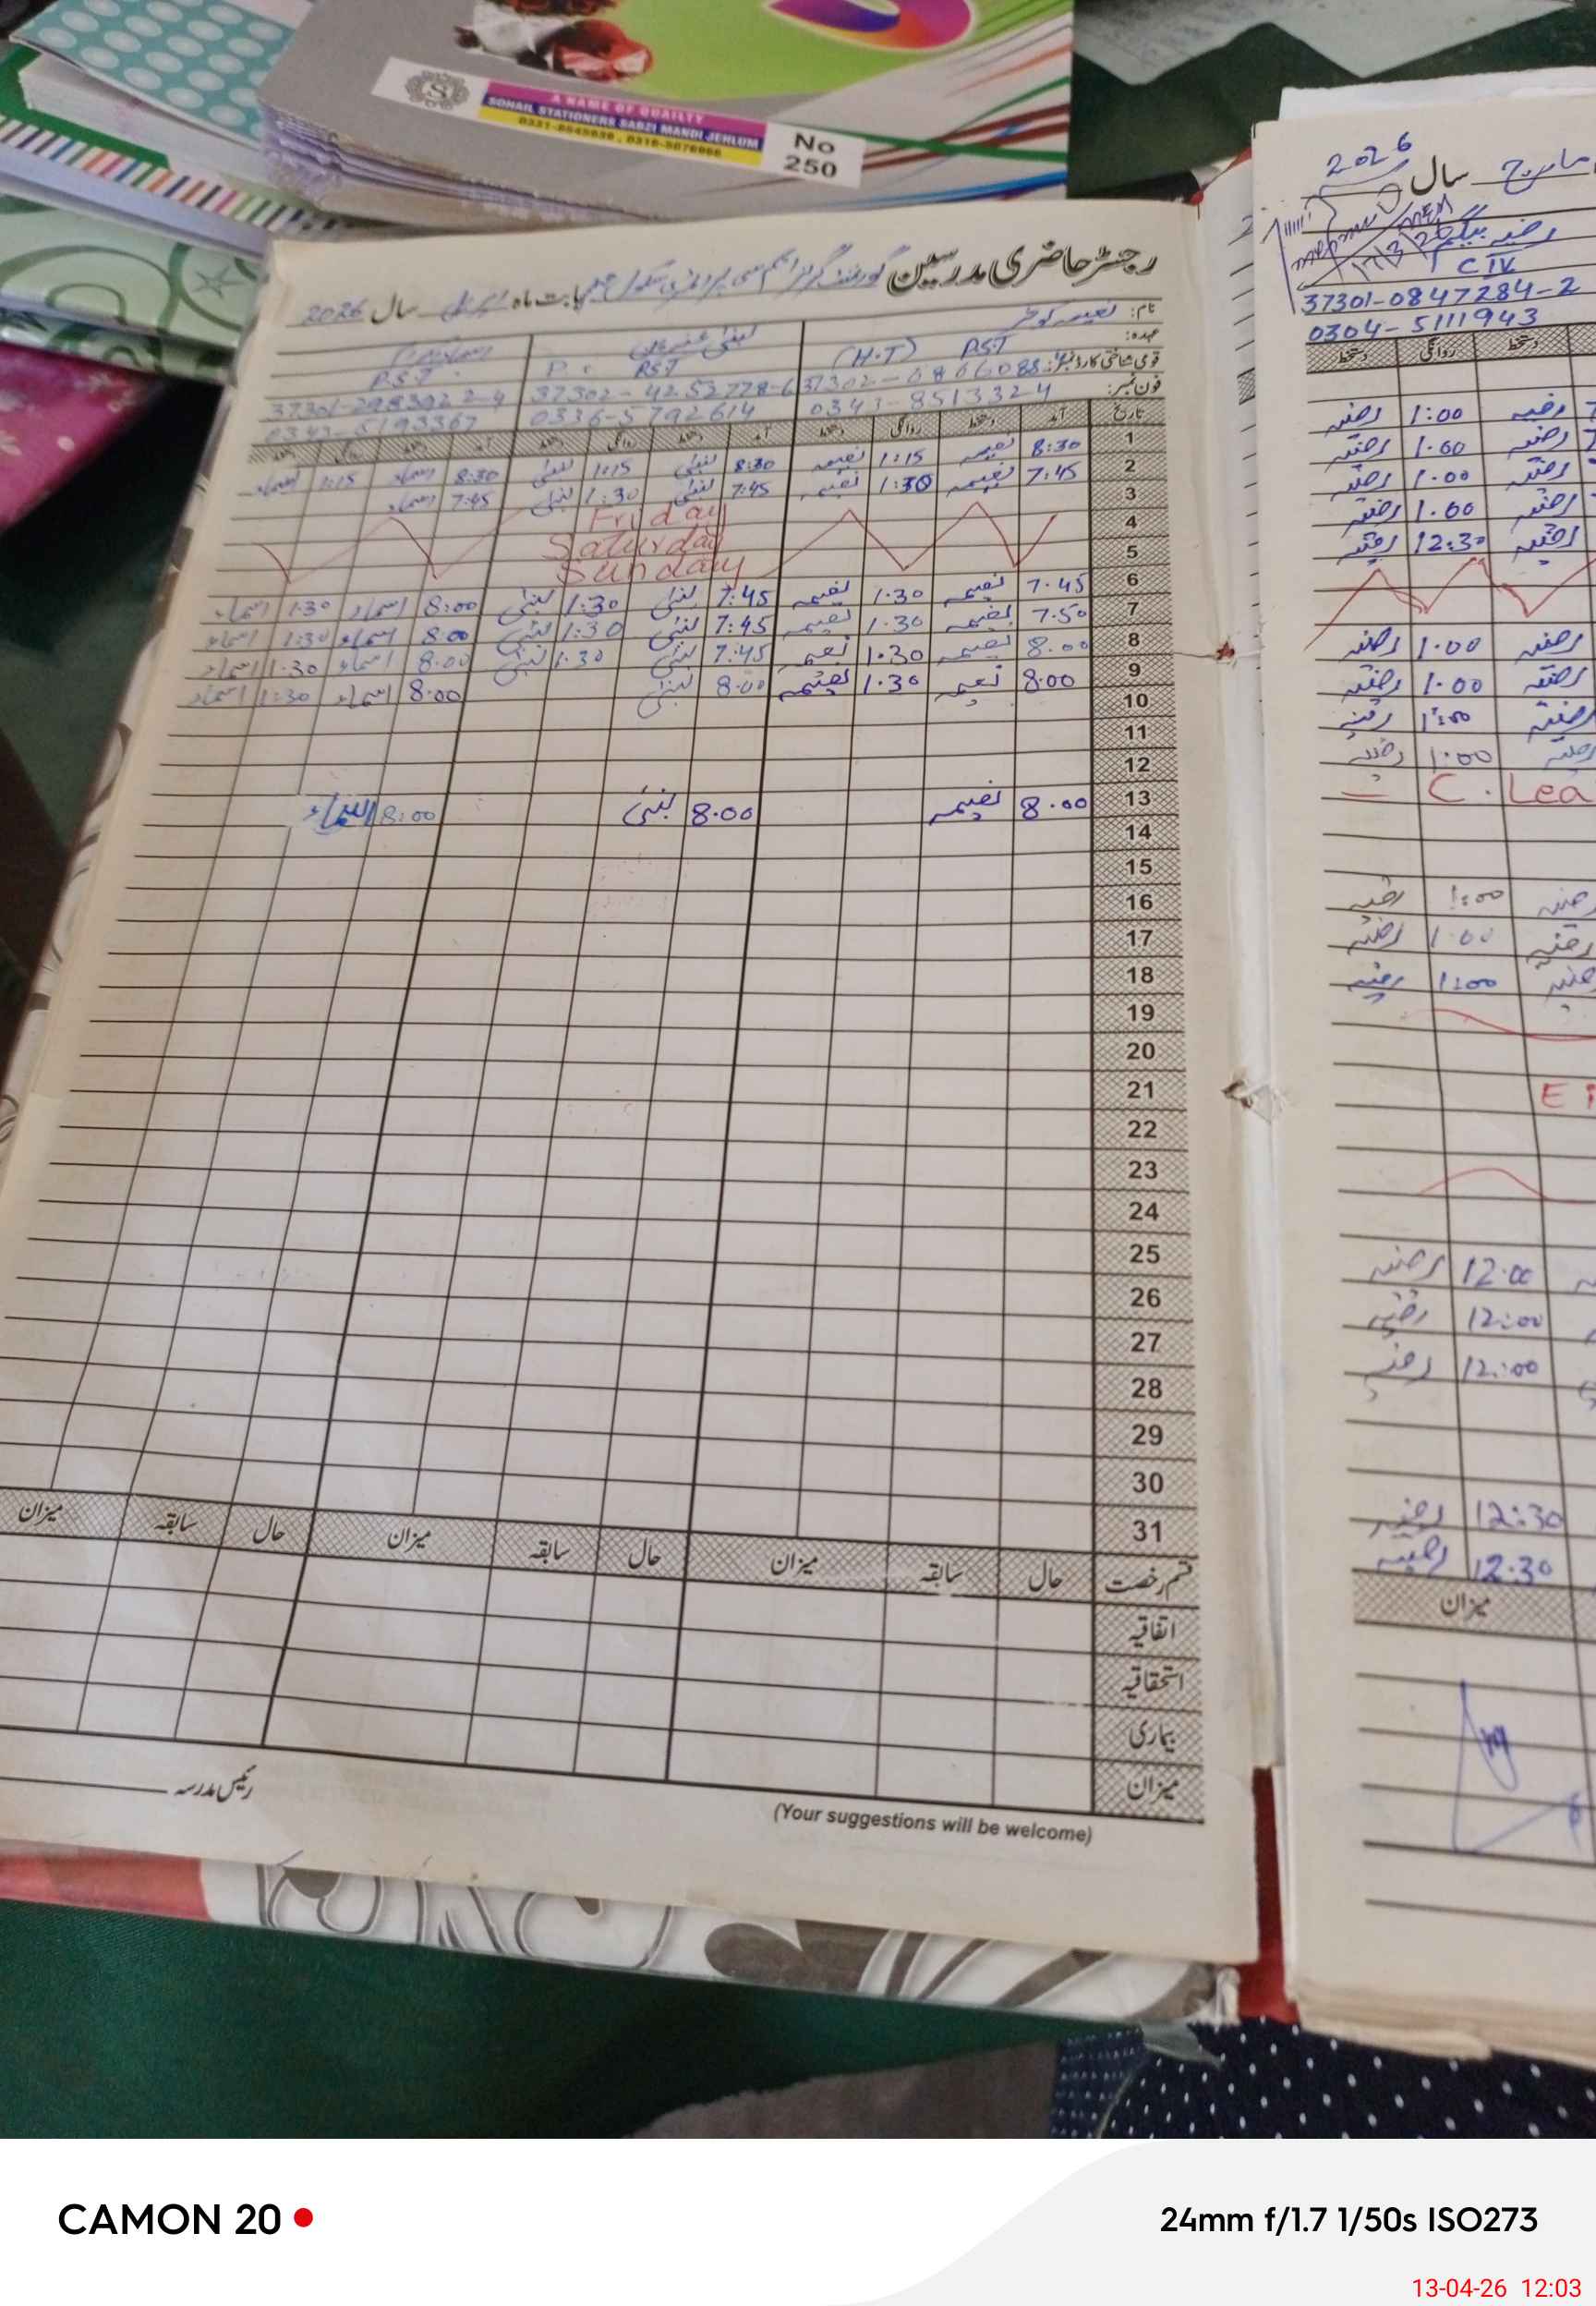 A NAME OF QUAILTY
SOHAIL STATIONERS SABZI MANDI JEHLUM
No
250
رجسٹر حاضری مدرسین گورنمنٹ گرلز ایم سی پرائمری سکول بابت ماہ اپریل سال 2026
نام: نعیمہ کوثر
عہدہ: (H.T) PST
PST
P.S.T
قومی شناختی کارڈ نمبر:
37302-4252778-6
فون نمبر: 0343-8513324
0336-5792614
تاریخ آمد دستخط روانگی دستخط آمد دستخط روانگی دستخط آمد دستخط روانگی دستخط
1 8:30 نعیمہ 1:15 نعیمہ 8:30 لبنیٰ 1:15 لبنیٰ 8:30 اسماء 1:15 اسماء
2 7:45 نعیمہ 1:30 نعیمہ 7:45 لبنیٰ 1:30 لبنیٰ 7:45 اسماء
3 Friday
4 Saturday
5 Sunday
6 7.45 نعیمہ 1.30 نعیمہ 7:45 لبنیٰ 1:30 لبنیٰ 8:00 اسماء 1:30 اسماء
7 7.50 نعیمہ 1.30 نعیمہ 7:45 لبنیٰ 1:30 لبنیٰ 8:00 اسماء 1:30 اسماء
8 8.00 نعیمہ 1.30 نعیمہ 7:45 لبنیٰ 1:30 لبنیٰ 8:00 اسماء 1:30 اسماء
9 8:00 نعیمہ 1.30 نعیمہ 8:00 لبنیٰ 8:00 اسماء 1:30 اسماء
10
11
12
13 8.00 نعیمہ 8.00 لبنیٰ 8:00 اسماء
14
15
16
17
18
19
20
21
22
23
24
25
26
27
28
29
30
31
قسم رخصت حال سابقہ میزان حال سابقہ میزان حال سابقہ میزان
اتفاقیہ
استحقاقیہ
بیماری
میزان
(Your suggestions will be welcome)
رئیس مدرسہ
مارچ سال 2026
رضیہ بیگم
CIV
37301-0847284-2
0304-5111943
دستخط روانگی دستخط
رضیہ 1:00 رضیہ
رضیہ 1.00 رضیہ
رضیہ 1.00 رضیہ
رضیہ 1.00 رضیہ
رضیہ 12:30 رضیہ
رضیہ 1.00 رضیہ
رضیہ 1.00 رضیہ
رضیہ 1:00 رضیہ
رضیہ 1:00 رضیہ
C. Lea
رضیہ 1:00 رضیہ
رضیہ 1.00 رضیہ
رضیہ 1:00 رضیہ
Ei
12.00 رضیہ
12:00 رضیہ
12:00 رضیہ
12:30 رضیہ
12.30 رضیہ
میزان
CAMON 20
24mm f/1.7 1/50s ISO273
13-04-26 12:03